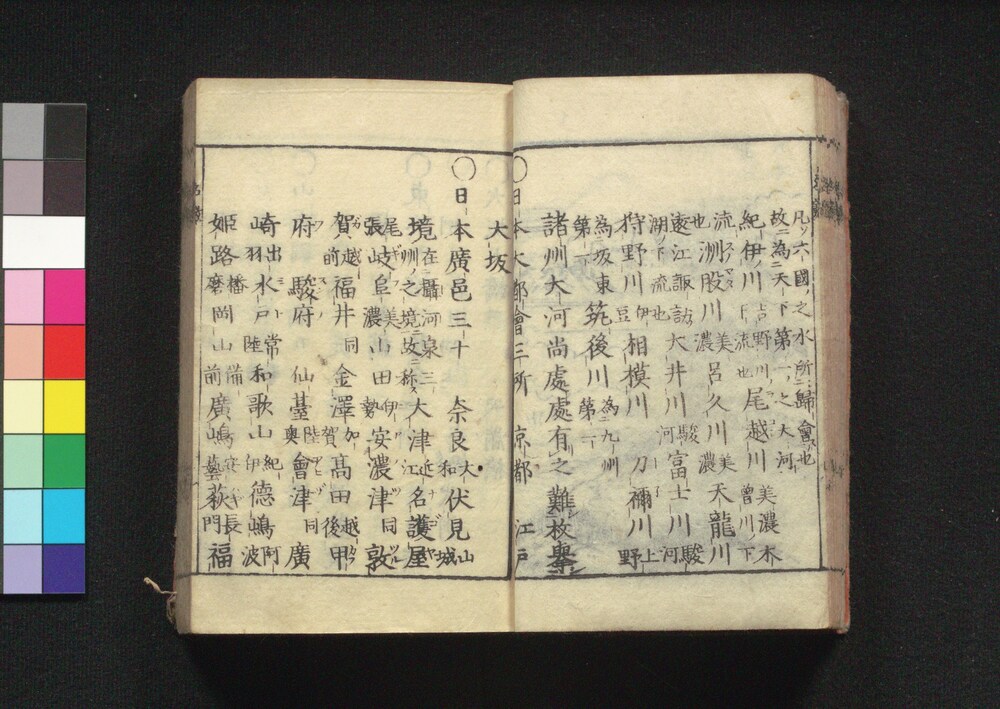 凡ソ六國之水所二歸會一也
故ニ為二天下第一之大河一
紀伊川吉野川下流也尾越川美濃木曾川下
流也洲股川美濃呂久川美濃天龍川
遠江諏訪湖下流也大井川駿河富士川駿河
狩野川伊豆相模川刀禰川上野
為坂東第一筑後川為九州第一
諸州大河尚處處有之難枚擧
〇日本大都會三所京都江戸
大坂
〇日本廣邑三十奈良大和伏見山城
境在攝河泉三州之境故ニ称ス大津近江名護屋
尾張岐阜美濃山田伊勢安濃津同敦
賀越前福井同金澤加賀髙田越後甲
府駿府仙臺陸奥會津同廣
﨑出羽水戸常陸和歌山紀伊德嶋阿波
姫路播磨岡山備前廣嶋安藝萩長門福